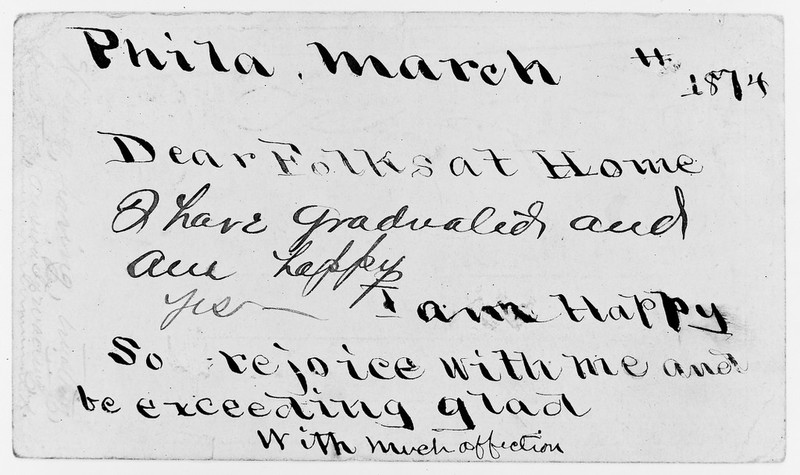 Phila. March 11 1874
Dear Folks at Home
I have graduated and
am happy
yes I am Happy
So rejoice with me and
be exceeding glad
With much affection